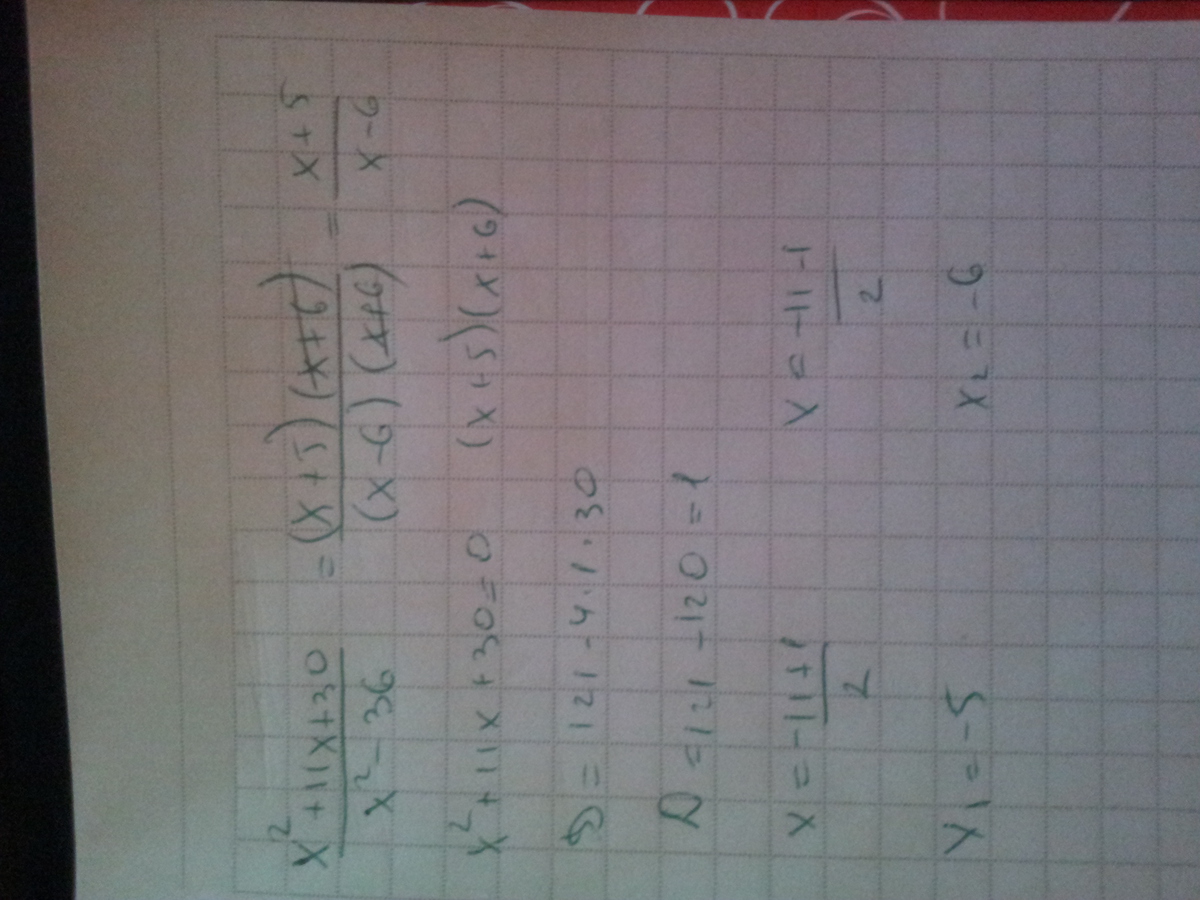 x² + 11x + 30 / x² - 36 = (x + 5)(x + 6) / (x - 6)(x + 6) = x + 5 / x - 6
x² + 11x + 30 = 0 (x + 5)(x + 6)
D = 121 - 4 · 1 · 30
D = 121 - 120 = 1
x = -11 + 1 / 2 x = -11 - 1 / 2
x₁ = -5 x₂ = -6